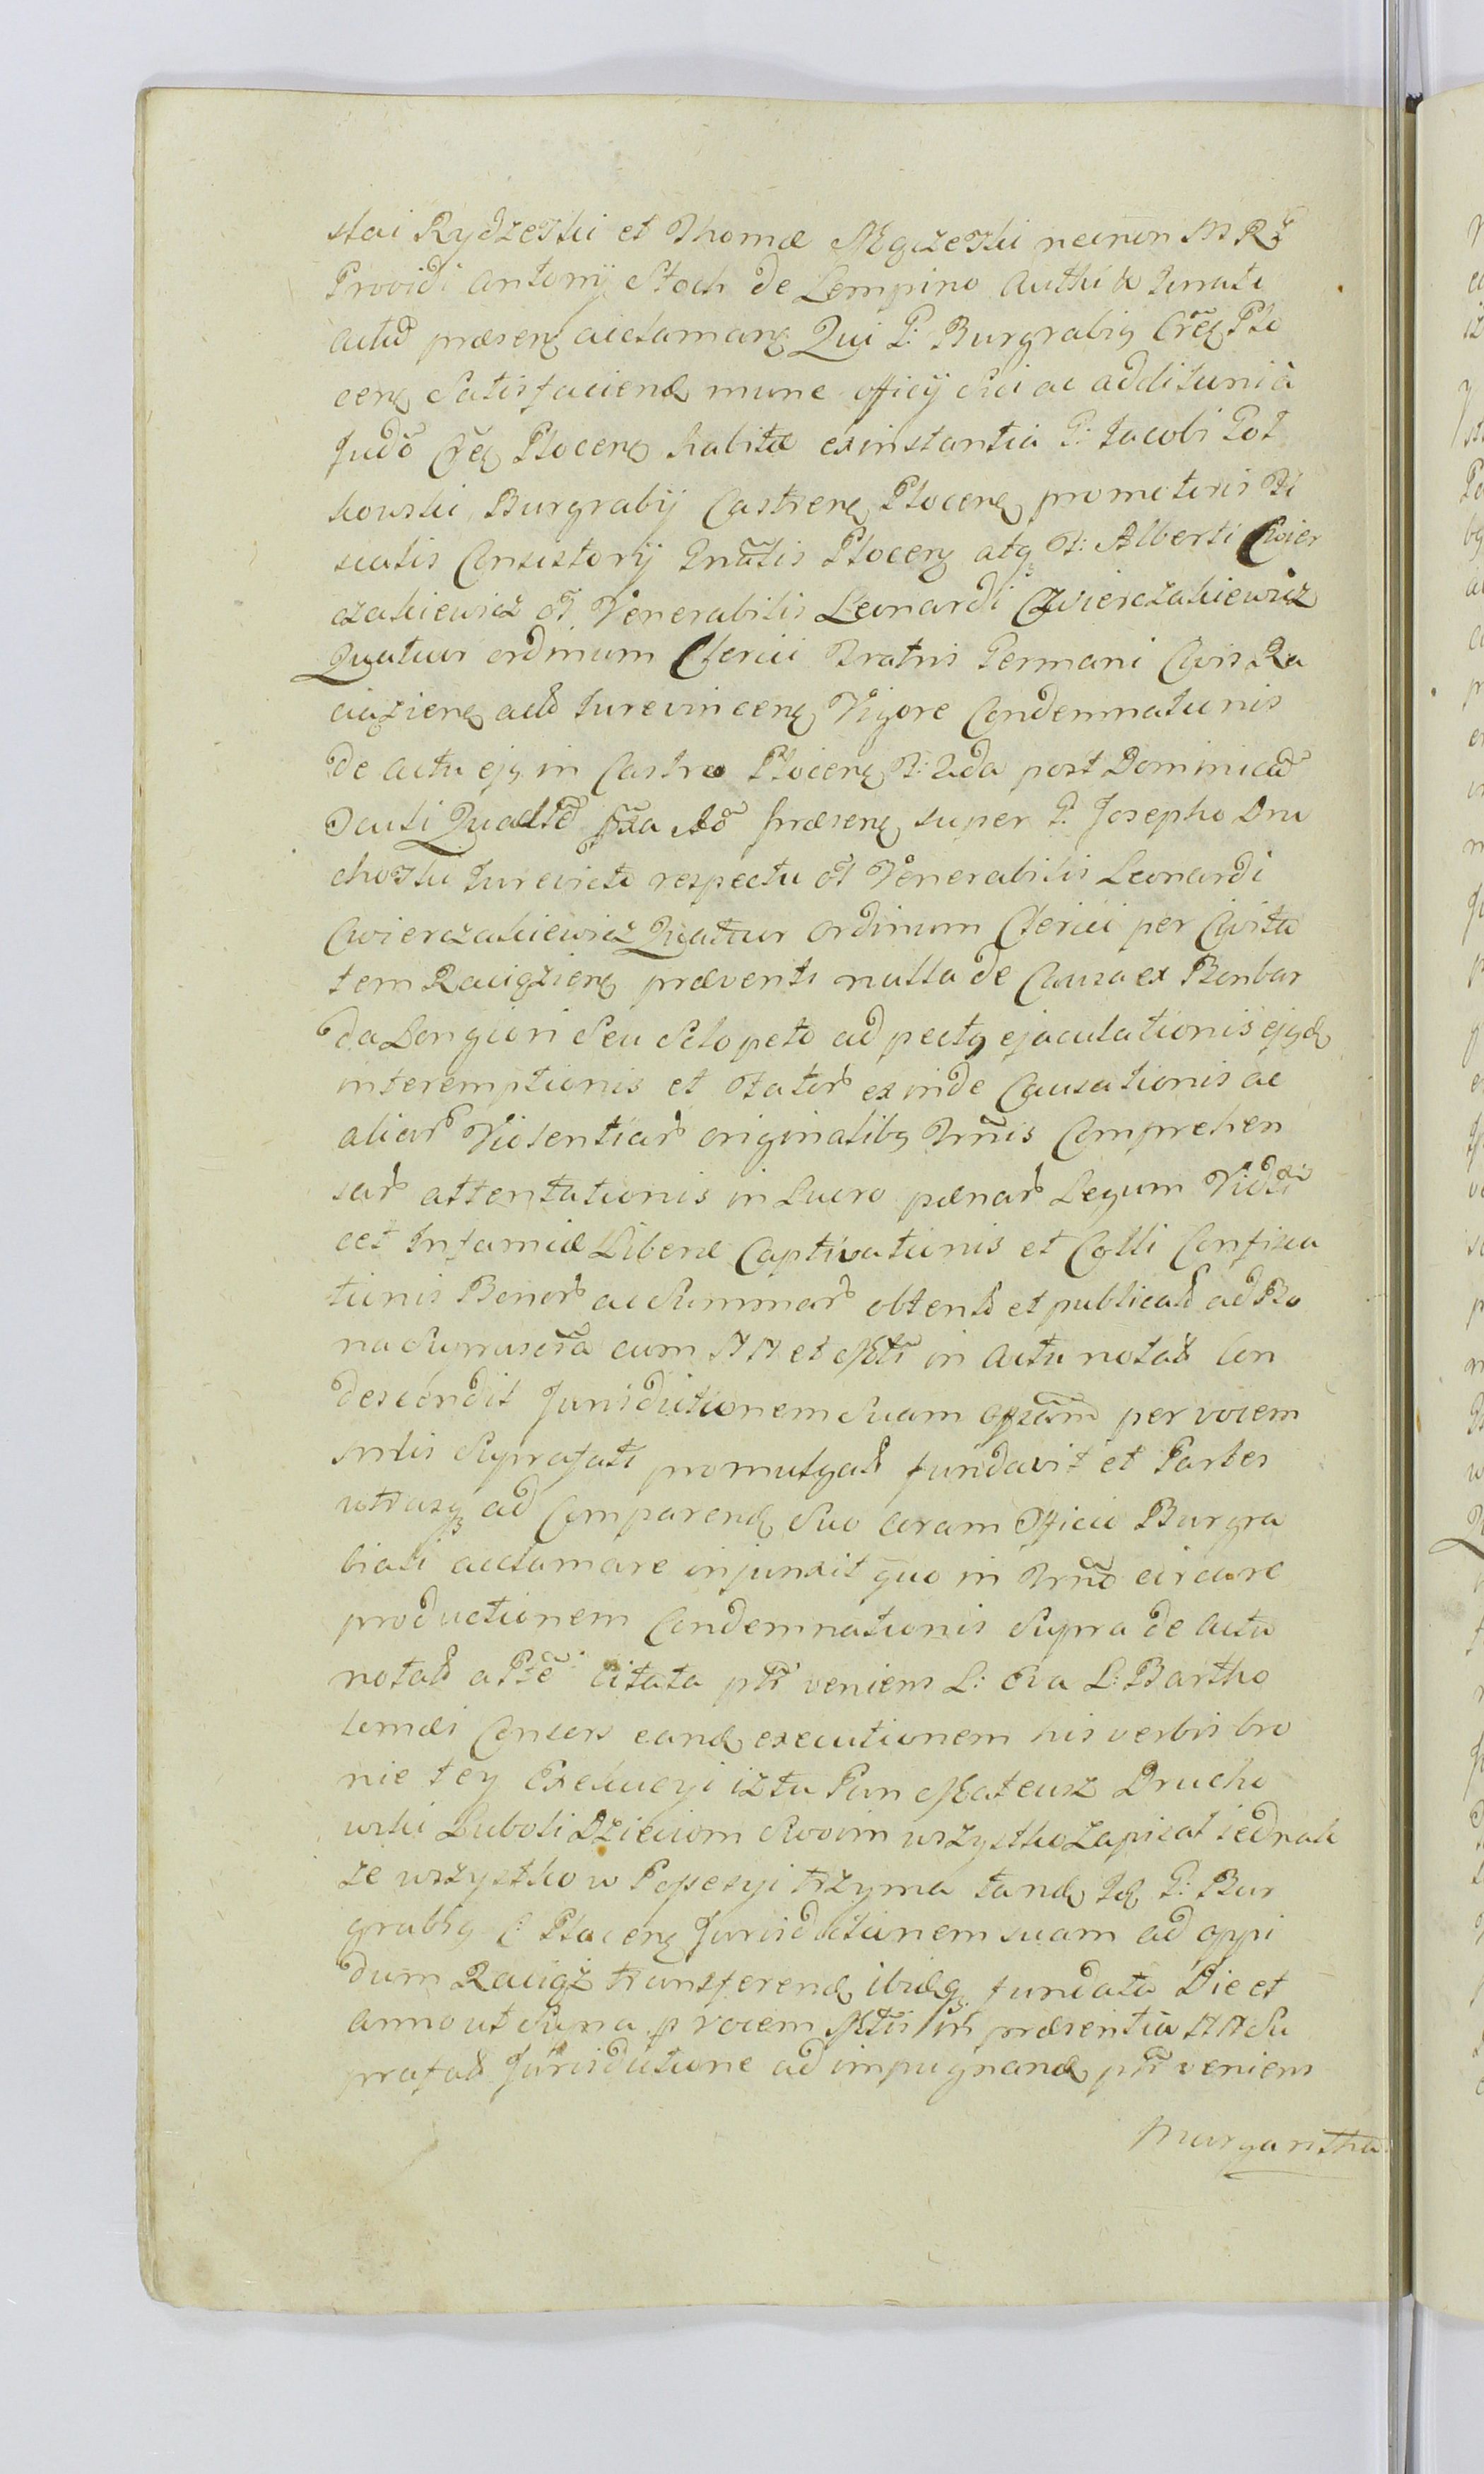 stai Rydzewski et Thomæ Mączewski necnon M R
Providi Antonij Stoch de Lempino Auth Jurati
actū præsenꝫ acclamanꝫ Qui G: Burgrabiꝯ Crēꝫ Plo
cenꝫ Satisfaciendꝫ mune officij sui ac additum à
Judō Crēꝫ Plocenꝫ habitæ ex instantia G: Jacobi Got
kowski, Burgrabij Castrenꝫ Plocenꝫ promotoris Fi
scalis Consistorij Gnālis Plocenꝫ atqꝫ F: Alberti Cwier
czakiewicz ol Venerabilis Leonardi Czwierczakiewicz
Quatuor ordinum Clerici Fratris Germani Civis Ra
ciązienꝫ actō Jurevincenꝫ Vigore Condemnationis
de actu ejꝯ in Castro Plocenꝫ F: 2da post Dominicā
Oculi præsenꝫ super G. Josepho Dru
chowski Jurevicto respectu ol Venerabilis Leonardi
Cwierczakiewicz Quatuor ordinum Clerici per Civita
tem Raciązienꝫ præventi nulla de Causa ex Bonbar
da Longiori Seu Sclopeto ad pectꝯ ejaculationis ejꝯdꝫ
interemptionis et exinde Causationis ac
aliar Violentiar originalibꝯ Trmis Comprehen
sar attentationis in Lucro pænar Legum Vidēt
cet Infamiæ Liberæ Captivationis et Colli Confisca
tionis Bonor ac Summar obtent et publicat ad Bo
na cum NN et Mtr in actu notat Con
descendit Jurisdictionem Suam per vocem
mlis Suprafati promulgat fundavit et Partes
utrasqꝫ ad Comparendꝫ Suo coram Officio Burgra
biali acclamare injunxit quo in Trnō circa re
productionem Condemnationis Supra de actu
notat a Pte citata ptr veniens L: Eva L: Bartho
lomæi Consors eandꝫ executionem his verbis bro
nie tey Exekucyi iż tu Pan Mateusz Drucho
wski Luboli Dzieciom Swoim wszystko zapisał iednak
ze wszystko w Possesyi trzyma tandꝫ Idꝫ G: Bur
grabiꝯ C: Plocenꝫ Jurisdictionem suam ad oppi
dum Raciąż transferendꝫ ibidꝫqꝫ fundata Die et
anno ut Supra p vocem Mtrii in præsentia NN Su
prafat Jurisdictione ad impugnandꝫ ptr veniens
Margaritha